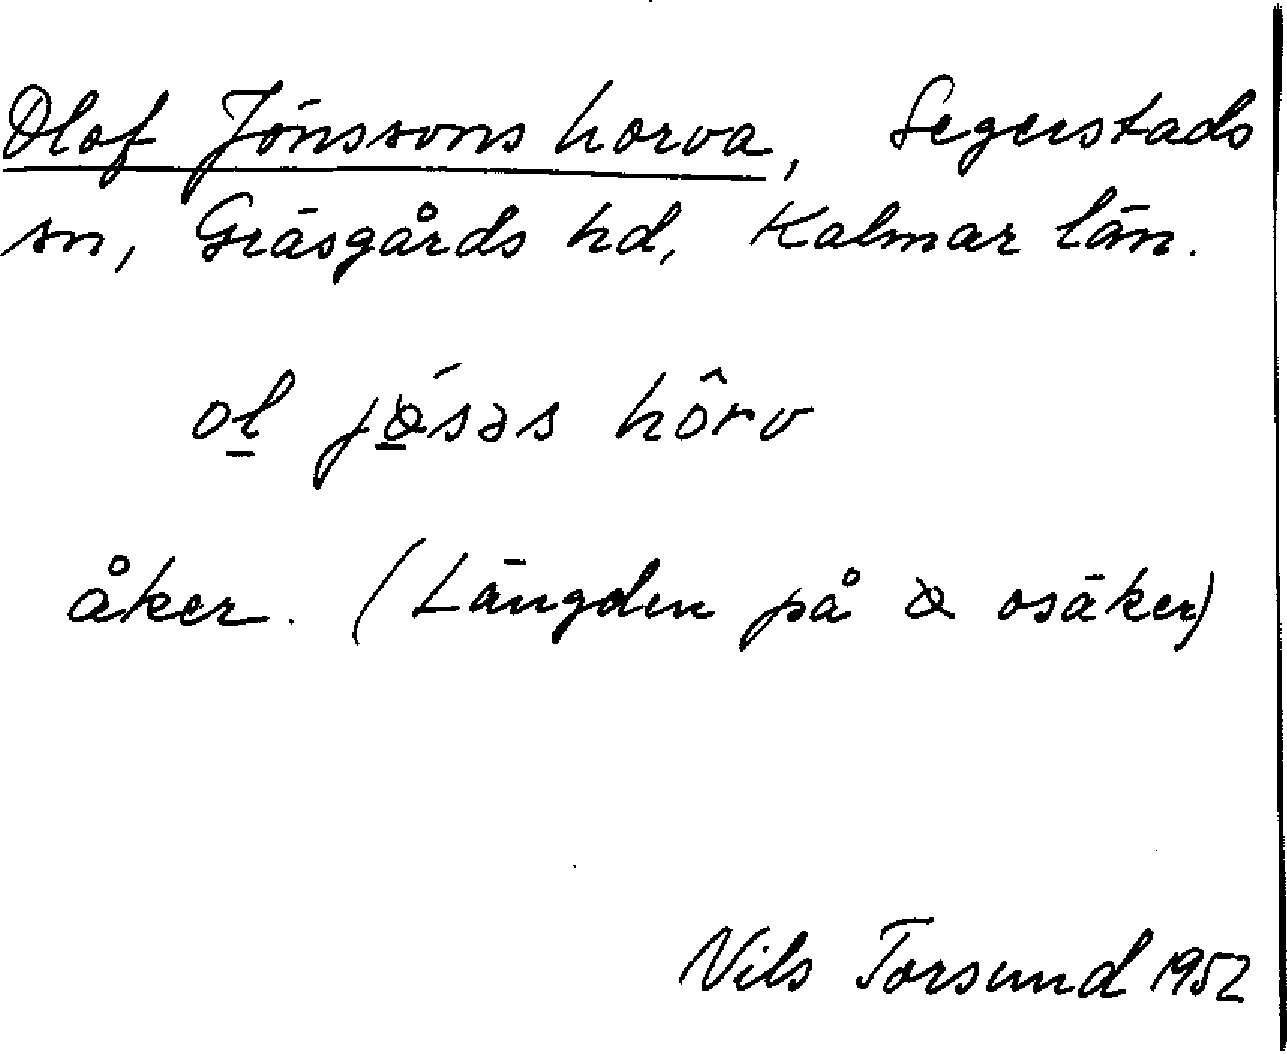 Olof Jönssons horva, Segerstads
sn, Gräsgårds hd, Kalmar län.
ol jɷ́səs hôrv
åker. (Längden på ɷ osäker)
Nils Torsund 1952